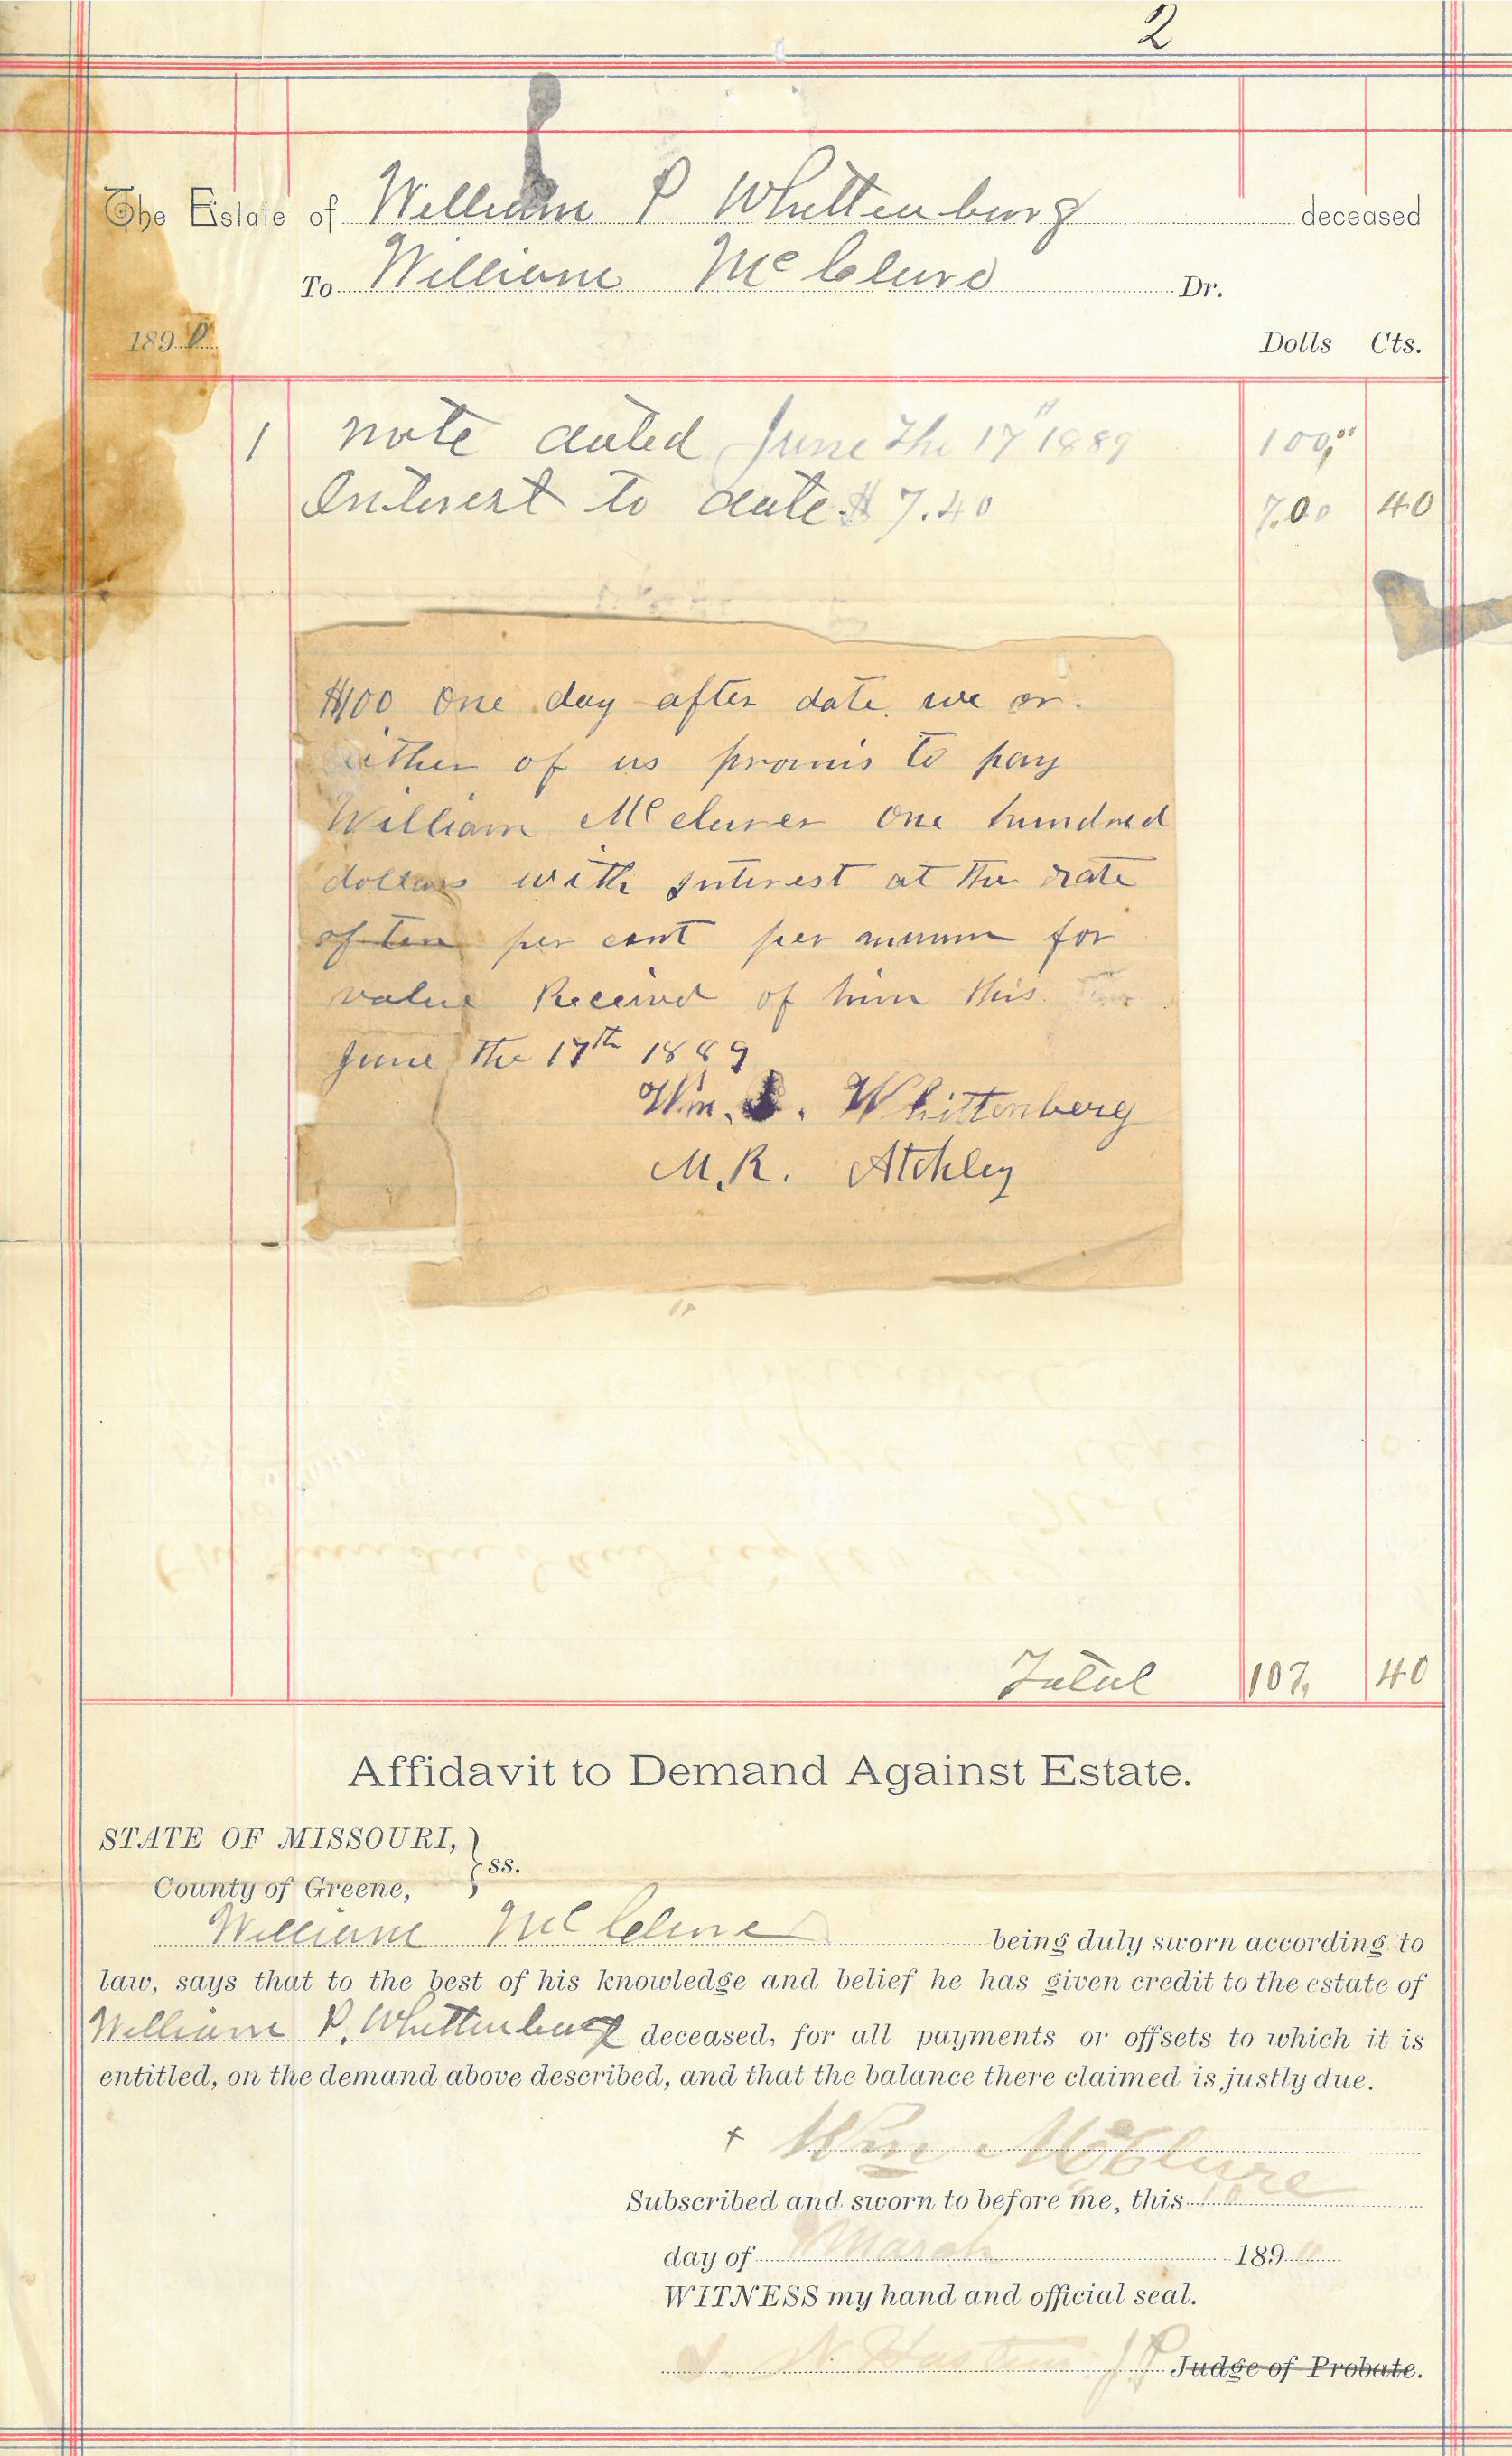 2
The Estate of William P Whittenburg deceased
To William McClure Dr.
1890 Dolls Cts.
1 note dated June the 17" 1889 100,00
Interest to date $ 7.40 7.00 40
$100 One day after date we or
either of us promis to pay
William Mcclurer One hundred
dollars with interest at the rate
of ten per cent per annum for
value Received of him this
June the 17th 1889
Wm. . Whittenberg
M.R. Atchley
Total 107, 40
Affidavit to Demand Against Estate.
STATE OF MISSOURI,
County of Greene, } ss.
William McClure being duly sworn according to
law, says that to the best of his knowledge and belief he has given credit to the estate of
William P. Whittenburg deceased, for all payments or offsets to which it is
entitled, on the demand above described, and that the balance there claimed is justly due.
x Wm McClure
Subscribed and sworn to before me, this 10
day of March 1890
WITNESS my hand and official seal.
N. JP Judge of Probate.